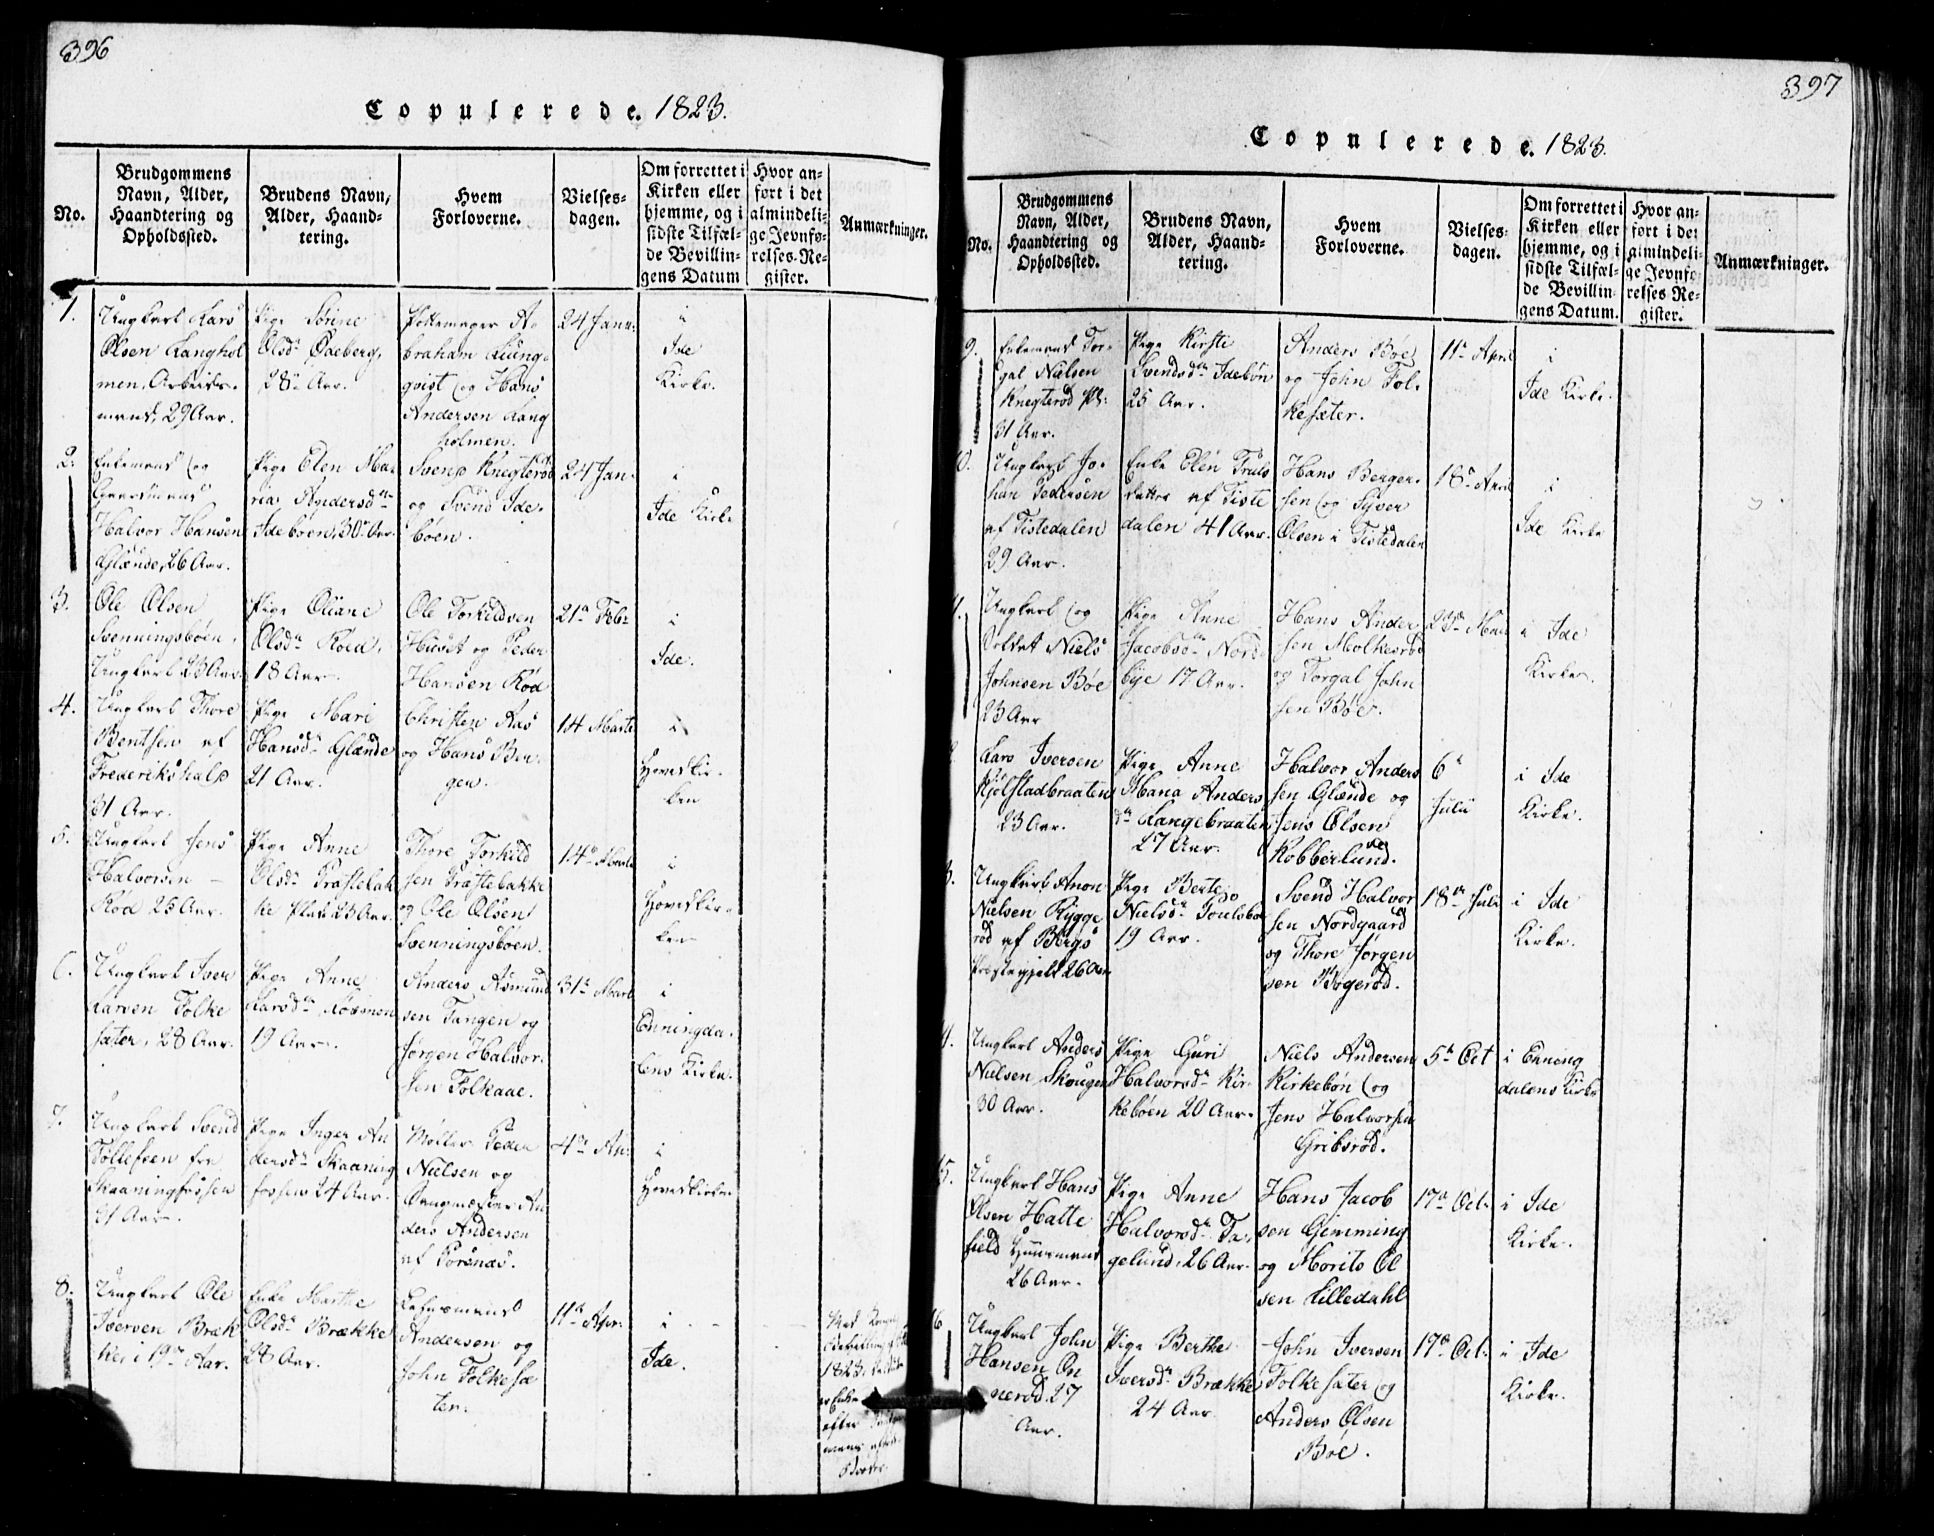 396
Copulerede. 1823.
No.
Brudgommens
Navn, Alder,
Haandtering og
Opholdssted.
Brudens Navn,
Alder, Haand-
tering.
Hvem
Forloverne.
Vielses-
dagen.
Om forrettet i
Kirken eller
hjemme, og i
sidste Tilfæl-
de Bevillin-
gens Datum
Hvor an-
ført i det
almindeli-
ge Jevnfø-
relses-Re-
gister.
Anmærkninger.
1.
Ungkarl Lars
Olsen Langhol
men, Arbeids-
mand, 29 Aar.
Pige Sørine
Olsdr
28 Aar.
A-
braham Liung-
qvist og Hans
Andersen Lang
holmen.
24 Janu:
i
Ide
Kirke.
2.
Enkemand og
Gaardmand
Halvor Hansen
Glænde, 26 Aar.
Pige Elen Ma-
rea Andersdr
Idebøen, 30 Aar.
Svend Knegterød
og Svend Ide-
bøen.
24 Jan:
i
Ide Kirke
3.
Ole Olsen
Svenningsbøen,
Ungkarl 23 Aar.
Pige
Olsdr Röed,
18 Aar.
Ole Torkildsen
Huset og Peder
Hansen Röd
21 Feb:
i
Ide.
4.
Ungkarl Thore
Bentsen af
Frederikshald
31 Aar.
Pige Mari
Hansdr Glænde
21 Aar.
Christen Aas
og Hans Ben-
gen.
14 Marts
i
Hovedkir-
ken
5.
Ungkarl Jens
Halvorsen
Röd 25 Aar.
Pige Anne
Olsdr Præstebak
ke 23 Aar.
Thore Torkild
sen Præstebakke
og Ole Olsen
Svenningsbøen.
14 Marts
i
Hovedkir-
ken
6.
Ungkarl Iver
Larsen Folke
sæter, 28 Aar.
Pige Anne
Larsdr
19 Aar.
Anders Asmund
sen Tangen og
Jørgen Halvor-
sen Folkaae.
31 Marts
i
Enningda-
lens Kirke.
7.
Ungkarl Svend
Tollefsen fra
Skaaningfossen
21 Aar.
Pige Inger An
dersdr Skaaning
fossen 24 Aar.
Møller Peder
Nielsen og
An
ders Andersen
af Porsnæs.
4de Ap:
i
Hovedkirken
8.
Ungkarl Ole
Iversen Bræk
ke, i 19de Aar.
Enke Marthe
Olsdr Brække
28 Aar.
Lehnsmand
Andersen og
John Folkesæ
ter.
11te Apr:
i
Ide.
1823
efter
397
Copulerede. 1823.
No.
Brudgommens
Navn, Alder,
Haandtering og
Opholdssted.
Brudens Navn,
Alder, Haand-
tering.
Hvem
Forloverne.
Vielses-
dagen.
Om forrettet i
Kirken eller
hjemme, og i
sidste Tilfæl-
de Bevillin-
gens Datum.
Hvor an-
ført i det
almindeli-
ge Jevnfø-
relses Re-
gister.
Anmærkninger.
9.
Enkemand Tor-
gal Nielsen
Knegterød Pl:
31 Aar.
Pige Kirsti
Svendsdr Idebøn
25 Aar.
Anders Böe
og John Fol-
kesæter.
11te April
i
Ide Kirke.
Ungkarl Jo-
han Pedersen
af Tistedalen
29 Aar.
Enke Elen Truls
datter af Tiste
dalen 41 Aar.
Hans Berger-
sen og Syver
Olsen i Tistedalen
18de April
i
Ide Kirke
Ungkarl og
Soldat Niels
Johnsen Böe
23 Aar
Pige Anne
Jacobsdr Nord-
bye 17 Aar.
Hans Ander
sen Molkerød
og Torgal John
sen Böe.
23de Mai
i Ide
Kirke.
Lars Iversen
Kjølstadbraaten
23 Aar.
Pige Anne
Maria Anders
dr Langebraaten
27 Aar.
Halvor Anders
sen Glænde og
Jens Olsen
Kobberlund.
6te
Julii
i Ide
Kirke.
Ungkarl Anon
Nielsen Rygge
röd af Bergs
Præstegjeld 26 Aar
Pige Berte
Nielsdr
19 Aar.
Svend Halvor
sen Nordgaard
og Thore Jørgen
sen Bøgerød.
18de Juli
i Ide
Kirke.
Ungkarl Anders
Nielsen Skougen
30 Aar.
Pige Guri
Halvorsdr Kir-
kebøen 20 Aar.
Niels Andersen
Kirkebøn og
Jens Halvorsen
Gribsröd.
5te Oct
i Enning
dalens Kirke
15.
Ungkarl Hans
Olsen Halte
field Huusmand
26 Aar.
Pige Anne
Halvorsdr Ta-
gelund, 26 Aar.
Hans Jacob
sen Gimming
og Morits Ol
sen Lilledahl
17de Oct:
i Ide
Kirke.
16
Ungkarl John
Hansen On
nerød 27
Aar.
Pige Berthe
Iversdr Brække
24 Aar
John Iversen
Folkesæter og
Anders Olsen
Böe.
17de Oct:
i Ide
Kirke.